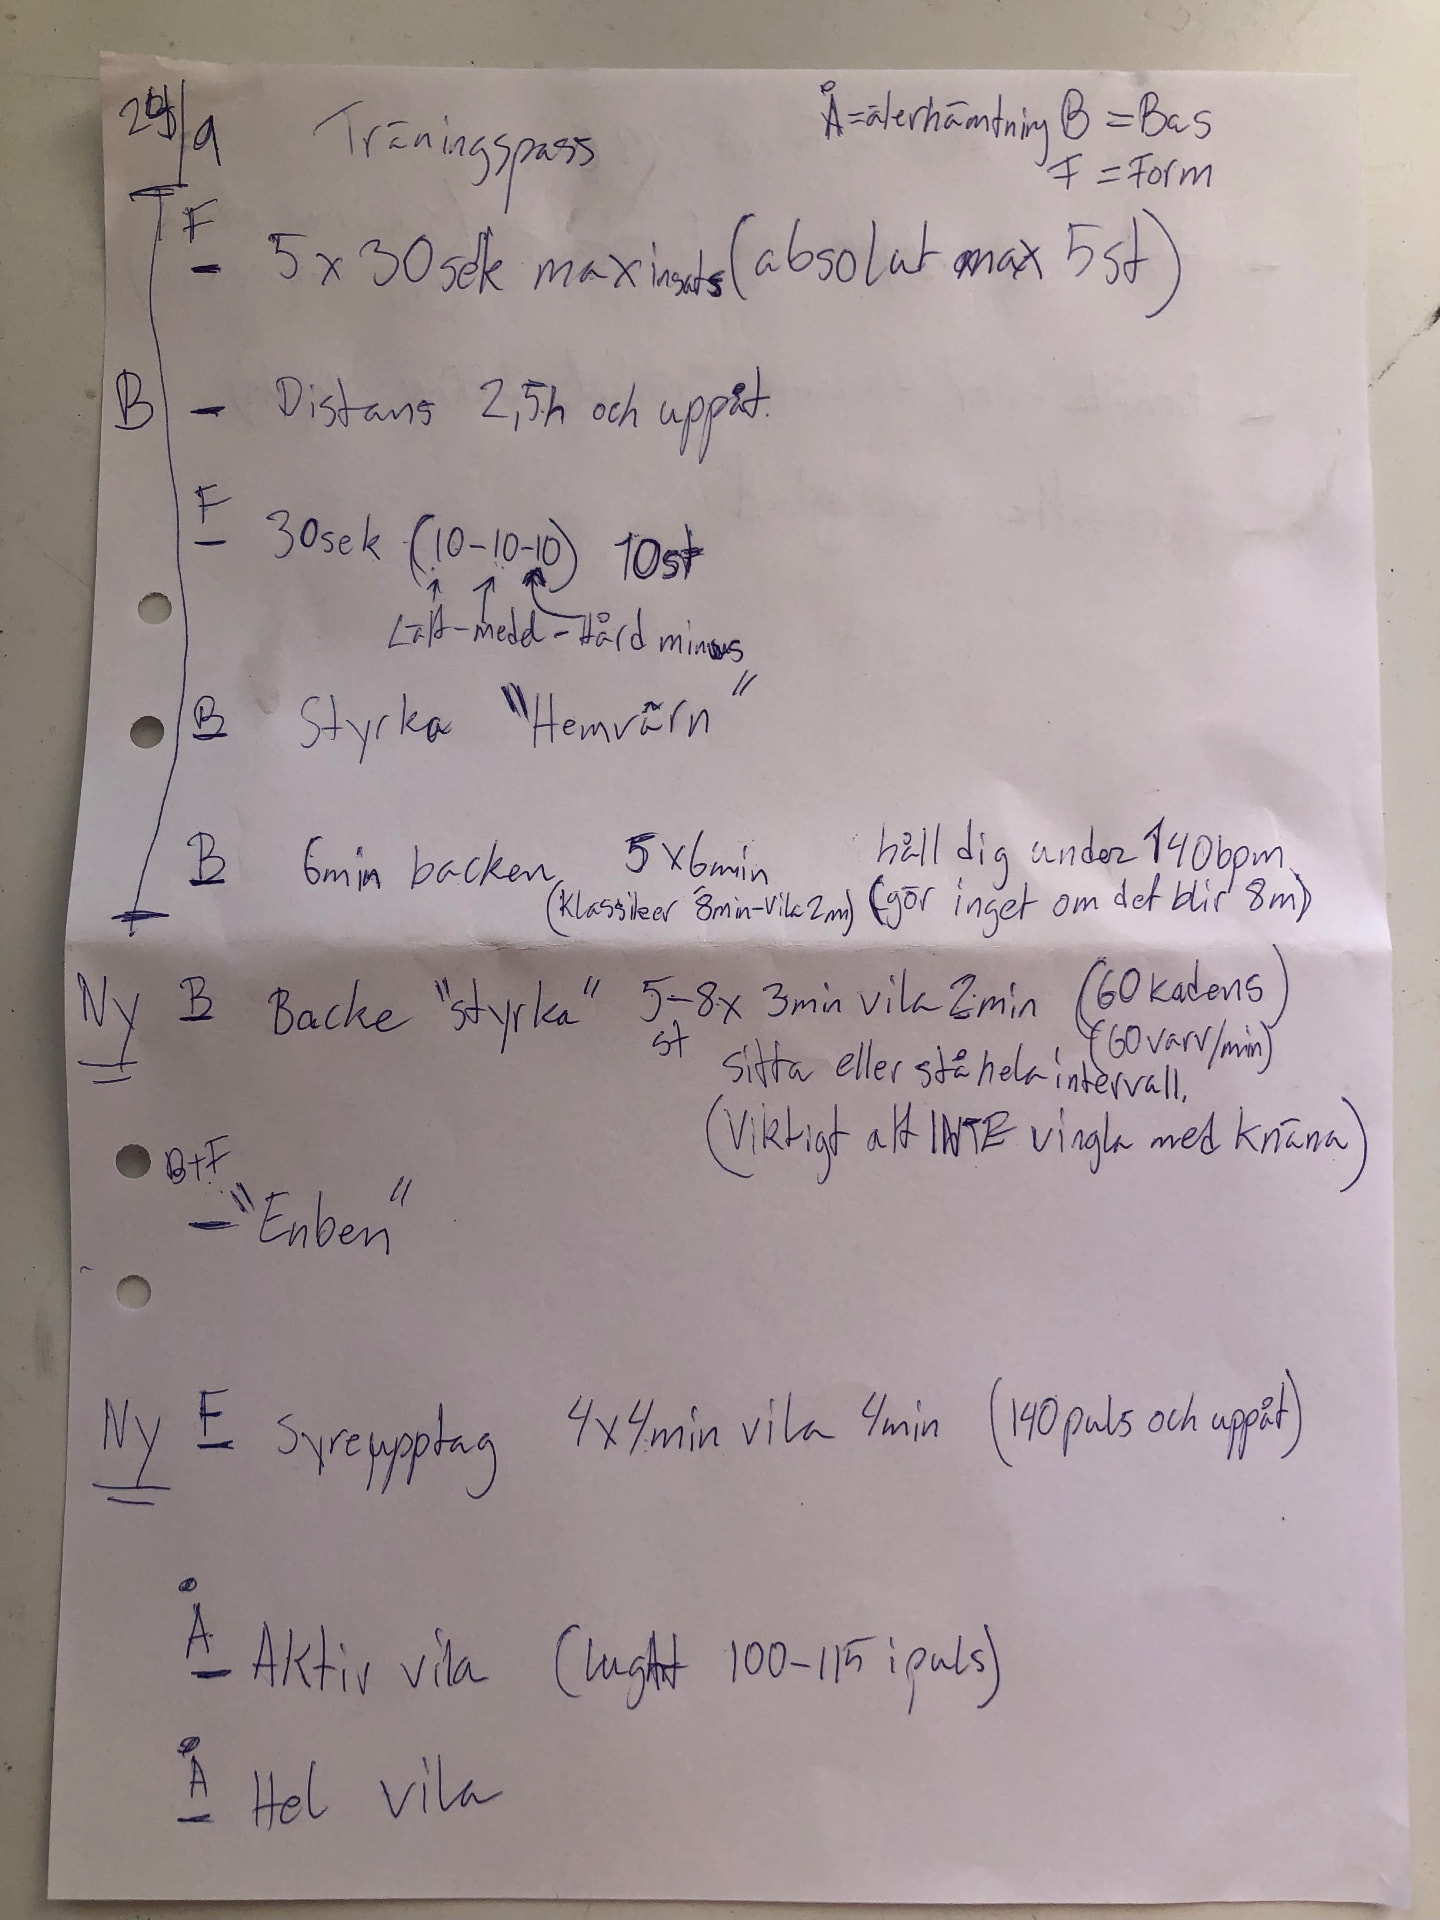 /9 Träningspass
Å=återhämtning B = Bas
F = Form
F
- 5 x 30sek maxinsats (absolut max 5st)
B - Distans 2,5h och uppåt.
F
- 30sek (10-10-10) 10st
Lätt-medel-Hård minus
B Styrka "Hemvärn"
B 6min backen 5x6min håll dig under 140bpm
(klassiker 8min-vila2m) (gör inget om det blir 8m)
Ny B Backe "styrka" 5-8x 3min vila 2min (60kadens)
st (60varv/min)
sitta eller stå hela intervall.
(Viktigt att INTE vingla med knäna)
B+F
- "Enben"
Ny F Syreupptag 4x4min vila 4min (140puls och uppåt)
Å
- Aktiv vila (lugnt 100-115 i puls)
Å
- Hel vila